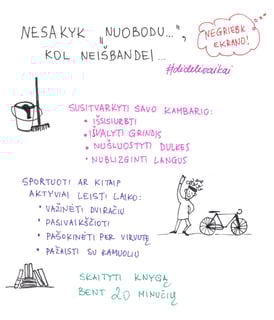 NESAKYK „NUOBODU...",
KOL NEIŠBANDEI...
NEGRIEBK
EKRANO!
#didelivaikai
SUSITVARKYTI SAVO KAMBARIO:
• IŠSISIURBTI
• IŠVALYTI GRINDIS
• NUŠLUOSTYTI DULKES
• NUBLIZGINTI LANGUS
SPORTUOTI AR KITAIP
AKTYVIAI LEISTI LAIKO:
• VAŽINĖTI DVIRAČIU
• PASIVAIKŠČIOTI
• PAŠOKINĖTI PER VIRVUTĘ
• PAŽAISTI SU KAMUOLIU
SKAITYTI KNYGĄ
BENT 20 MINUČIŲ